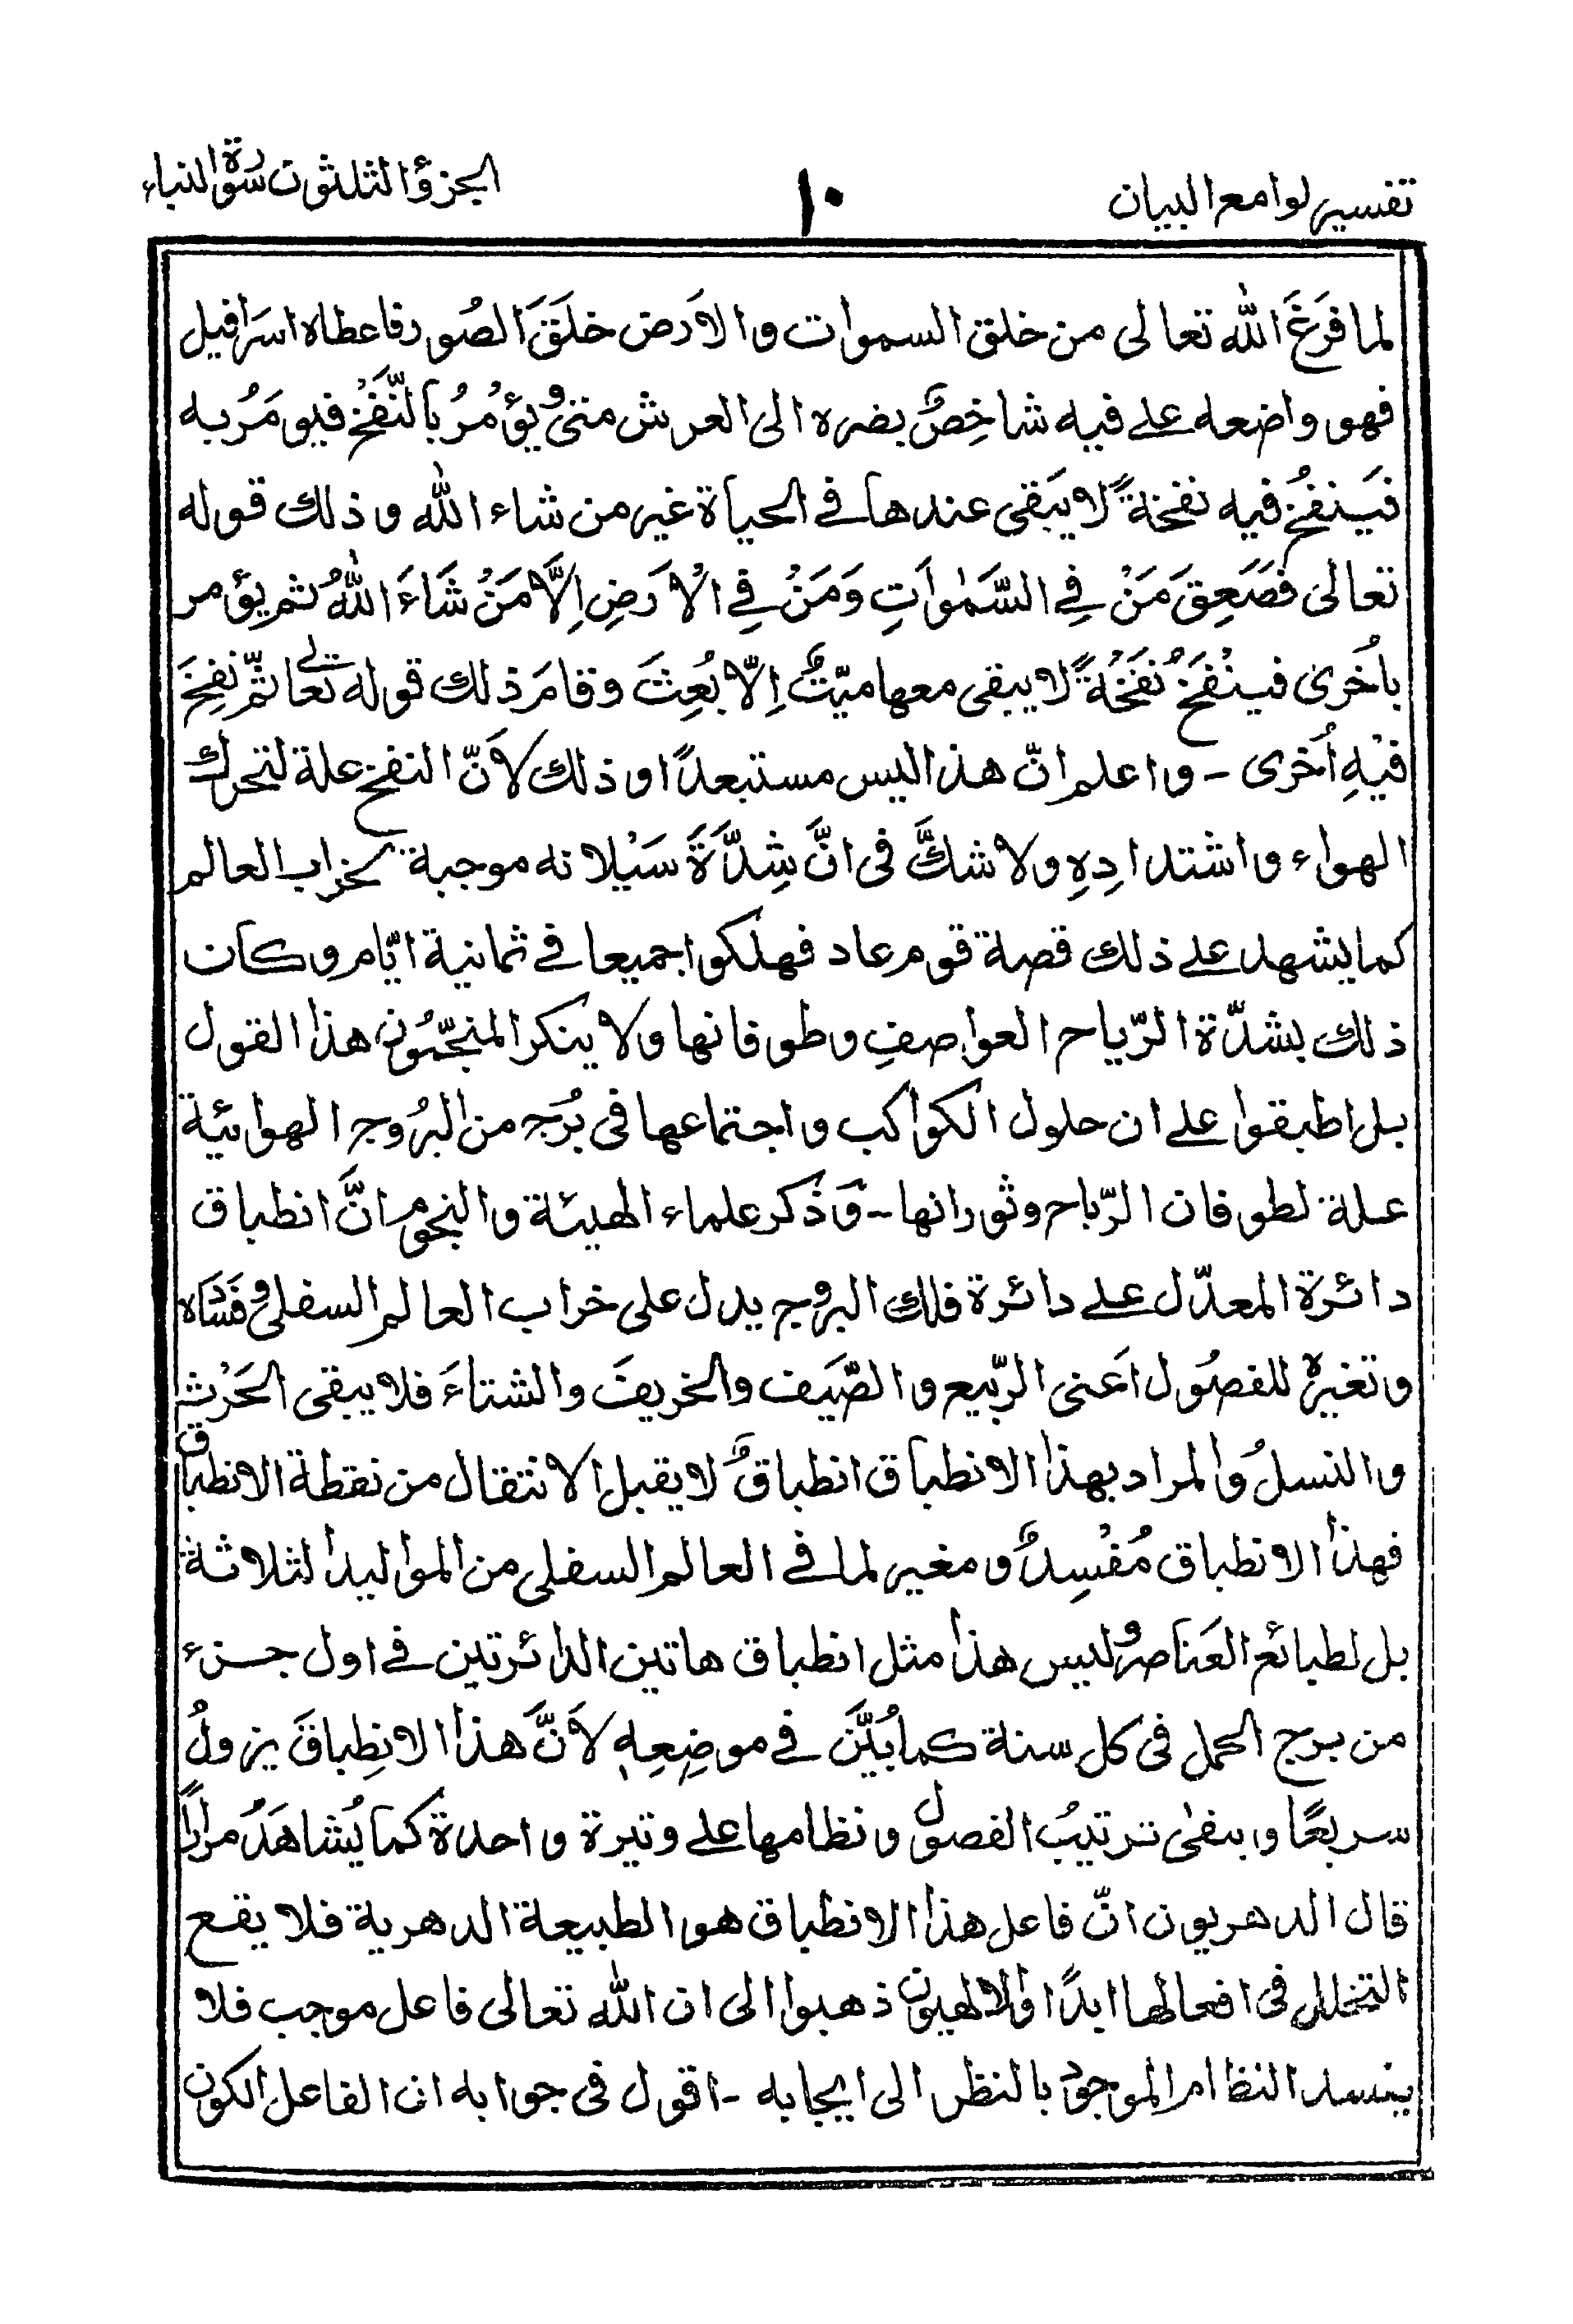 تفسير لوامع البيان ١٠ الجزؤ الثلثون سورة النباء
لما فَرَغَ الله تعالى من خلق السموات والاَرض خلَقَ الصُور فاعطاه اسرافيل
فهو واضعه على فيه شاخِصٌ بضره الى العرش متىٰ يُؤمُرُ بالنَّفَخْ فيومَرُ به
فيَنفخُ فيه نفخةً لا يَبَقى عندها فى الحياة غير من شاء الله وذلك قوله
تعالى فَصَعِقَ مَنْ فِى السَّمٰواَتِ وَمَنْ فِى الْاَرَضِ اِلَّا مَنْ شَاَءَ اللهُ ثم يؤمر
باُخرىٰ فينْفَخُ نُفَخْةً لا يبقى معها ميّتٌ اِلّا بُعِثَ وقامَ ذلك قوله تعالى ثمّ نفِخَ
فيْهِ اُخرى - واعلم انّ هذا ليس مستبعدًا وذلك لاَنّ النفخ علة لتحرك
الهواء واشتدادِهِ ولا شكَّ فى انَّ شِدَّةَ سَيْلانه موجبة لخراب العالم
كما يشهد على ذلك قصة قوم عاد فهلكوا جميعا فى ثمانية ايّام وكان
ذلك بشدّة الرّياح العواصفِ وطوفانها ولا ينكر المنجّمُون هذا القول
بل اطبقوا على ان حلول الكواكب واجتماعها فى بُرَج من البُروج الهوائية
علة لطوفان الرّباح وثورانها - وَذكر علماء الهيئة والنجوم انَّ انطباق
دائرة المعدّل على دائرة فلك البروج يدل على خراب العالم السفلى وفَسَاده
وتغيره للفصُول اَعنى الربّيع والصَّيَف والخريفَ والشتاءَ فلا يبقى الحَرْث
والنسلُ والمراد بهذا الانطباق انطباقٌ لا يقبل الانتقال من نقطة الانطباق
فهذا الانطباق مُفْسِدٌ ومغير لما فى العالم السفلى من المواليد الثلاثة
بل لطبائع العَناصر وليس هذا مثل انطباق هاتين الدائرتين فى اول جزء
من برج الحمل فى كل سنة كما بُيَّنَ فى موضِعِهٖ لاَنَّ هذا الانِطباقَ يزولُ
سريعًا ويبقىٰ ترتيبُ الفصول ونظامها على وتيرة واحدة كما يُشاهَدُ مرارًا
قال الدهريون انّ فاعل هذا الانطباق هو الطبيعة الدهرية فلا يقع
التخلل فى افعالها ابدًا والالهيون ذهبوا الى ان الله تعالى فاعل موجب فلا
ينسد النظام الموجود بالنظر الى ايجابه - اقول فى جوابه ان الفاعل الكون